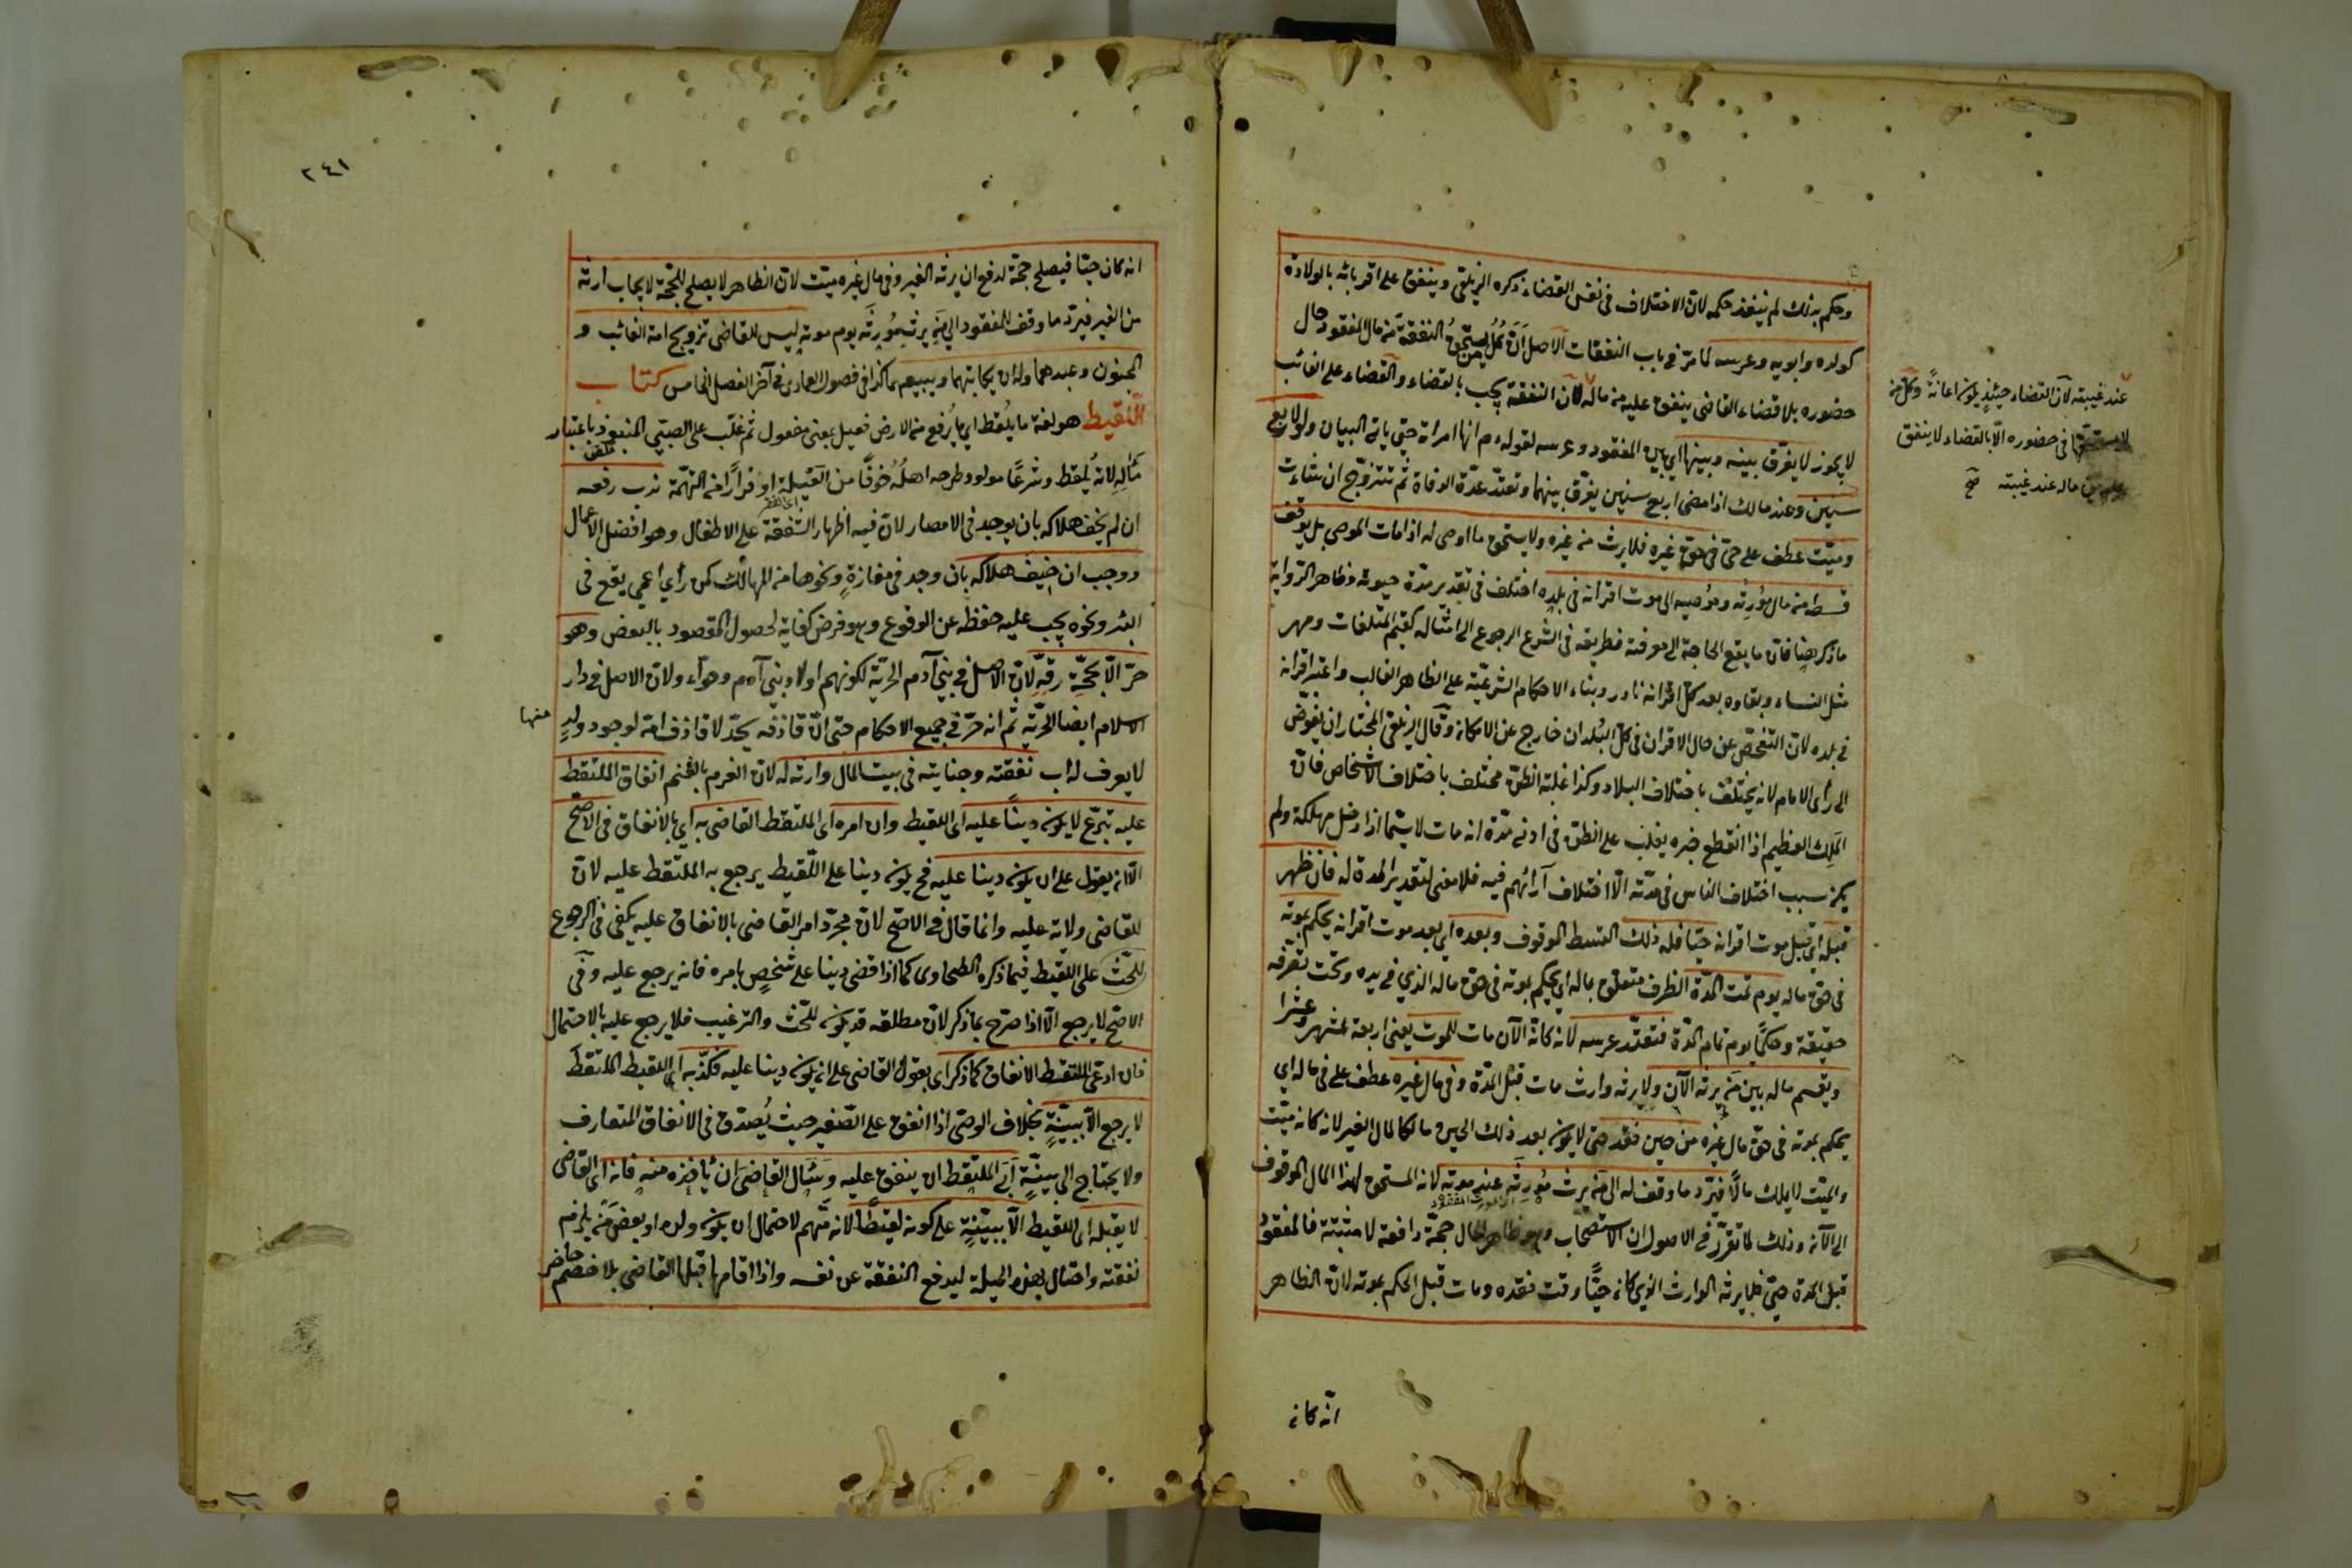 وحكم بذلك لم ينفذ حكمه لانّ الاختلاف فى نفس القضاء ذكره الزيلعى وينفق على اقربائه بالولادة
كولده وابويه وعرسه لما مرّ فى باب النفقات الاصل انّ كُلّ من يستحقّ النفقة من مال المفقود حال
حضوره بلا قضاء القاضى ينفق عليه من ماله لانّ النفقة يجب بالقضاء والقضاء على الغائب
لا يجوز لا يفرّق بينه وبينها اى بين المفقود وعرسه لقوله عم انها امراته حتى ياتى البيان ولو لاربع
سنين وعند مالك اذا مضى اربع سنين يفرّق بينهما وتعتدّ عدّة الوفاة ثم تتزوّج ان شاءت
وميّت عطف على حىّ فى حقّ غيره فلا يرث من غيره ولا يستحق ما اوصى له اذا مات الموصى بل يوقف
قسطه من مال مورثه وموصيه الى موت اقرانه فى بلده اختلف فى تقدير مدة حيوته وظاهر الرواية
ما ذكر هنا فانّ ما يقع الحاجة الى معرفته فطريقه فى الشرع الرجوع الى امثاله كقيم المتلفات ومهر
مثل النساء وبقاوه بعد كلّ اقرانه نادر وبناء الاحكام الشرعيّة على الظاهر الغالب واعتبر اقرانه
فى بلده لانّ التفحّص عن حال الاقران فى كلّ البُلدان خارج عن الامكان وقال الزيلعى المختار ان يفوّض
الى رأى الامام لانه يختلف باختلاف البلاد وكذا غلبة الظنّ مختلف باختلاف الاشخاص فانّ
المَلِك العظيم اذا انقطع خبره يغلب على الظنّ فى ادنى مدّة انه مات لا سيّما اذا دخل مهلكة ولم
يكن سبب اختلاف الناس فى مدّته الّا اختلاف آرائهم فيه فلا معنى لتقدير المدة له فان ظهر
قبله اى قبل موت اقرانه حيّا فله ذلك القسط الموقوف وبعده اى بعد موت اقرانه يحكم بموته
فى حق ماله يوم تمت المدّة الظرف متعلق بماله اى يحكم بموته فى حق ماله الذي فى يده وتحت تصرّفه
حقيقة وحكمًا يوم تمام المدّة فتعتدّ عرسه لانه كانّه الآن مات للموت يعنى اربعة اشهر وعشرا
ويقسم ماله بين مَن يرثه الآن ولا يرثه وارث مات قبل المدّة وفى مال غيره عطف على فى ماله اى
يحكم بموته فى حق مال غيره من حين فقد حتى لا يكون بعد ذلك الحين مالكا لمال الغير لانه كانه ميّت
والميّت لا يملك مالًا فيردّ ما وقف له الى من يرث مُورثَه عند موته لانه المستحق لهذا المال الموقوف
الى الآن وذلك لما تقرّر فى الاصول ان الاستصحاب وهو ظاهر الحال حجّة دافعة لا مثبتة فالمفقود
قبل المدة حىّ فلا يرثه الوارث الذي كان حيًّا وقت فقده ومات قبل الحكم بموته لانّ الظاهر
عند غيبته لانّ القضاء حينئذٍ يكون اعانةً وكل من
لا يستحقها فى حضوره الّا بالقضاء لا ينفق
عليه من ماله عند غيبته صح
انّه كان
٢٤١
انه كان حيّا فيصلح حجّة لدفع ان يرثه الغير وفى مال غيره ميّت لانّ الظاهر لا يصلح للحجّة لايجاب ارثه
من الغير فيردّ ما وقف للمفقود الى من يرث مُورِثَه يوم موته ليس للقاضى تزويج امة الغائب و
المجنون وعبدهما وله ان يكاتبهما ويبيعهما كذا فى فصول العمادى فى آخر الفصل الخامس كتاب
اللّقيط هو لغة ما يُلقط اى ما يُرفع من الارض فعيل بمعنى مفعول ثم غلب على الصبيّ المنبوذ باعتبار
مآله لانه يُلقط وشرعًا مولود طرحه اهلُه خوفًا من العَيْلة او فرارًا من التّهمة ندب رفعه
ان لم يخف هلاكه بان يوجد فى الامصار لانّ فيه اظهار الشفقة على الاطفال وهو افضل الاعمال
ووجب ان خيف هلاكه بان وجد فى مفازةٍ ونحوها من المهالك كمن رأى اعمى يقع فى
البئر ونحوه يجب عليه حفظه عن الوقوع وهو فرض كفاية لحصول المقصود بالبعض وهو
حرّ الّا بحجّة رقّهِ لانّ الاصل فى بني آدم الحريّة لكونهم اولاد بني آدم وحوّاء ولانّ الاصل فى دار
الاسلام ايضا الحرّية ثم انه حرّ فى جميع الاحكام حتى انّ قاذفه يحدّ لا قاذف امّه لوجود ولدٍ
منها
لا يعرف له اب نفقته وجنايته فى بيت المال وارثه له لانّ الغرم بالغنم انفاق الملتقط
عليه تبرّع لا يكون دينًا عليه اى اللقيط وان امره اى الملتقط القاضى به اى بالانفاق فى الاصحّ
الّا ان يقول على ان يكون دينا عليه فح يكون دينا على اللّقيط يرجع به الملتقط عليه لانّ
للقاضى ولاية عليه وانما قال فى الاصّح لانّ مجرّد امر القاضى بالانفاق عليه يكفى فى الرجوع
على اللقيط فيما ذكره الطحاوى كما اذا قضى دينا على شخصٍ بامره فانه يرجع عليه وفى
الاصّح لا يرجع الّا اذا صرّح بما ذكر لانّ مطلقه قد يكون للحثّ والترغيب فلا يرجع عليه بالاحتمال
فان ادعى الملتقط الانفاق كما ذكر اى بقول القاضى على ان يكون دينا عليه فكذّبه اى اللقيط الملتقطَ
لا يرجع الّا ببيّنةٍ بخلاف الوصىّ اذا انفق على الصّغير حيث يُصدّق فى الانفاق المتعارف
ولا يحتاج الى بيّنةٍ اَبَى الملتقط ان ينفق عليه وسَئَال القاضىَ ان يأخذه منه فانه اى القاضى
لا يقبله اى اللقيط الّا ببيّنةٍ على كونه لقيطًا لانه متّهم لاحتمال ان يكون ولده او بعض من يلزم
نفقته واحتال بهذه الحيلة ليدفع النفقة عن نفسه واذا اقامها قبلها القاضى بلا خصم حاضر